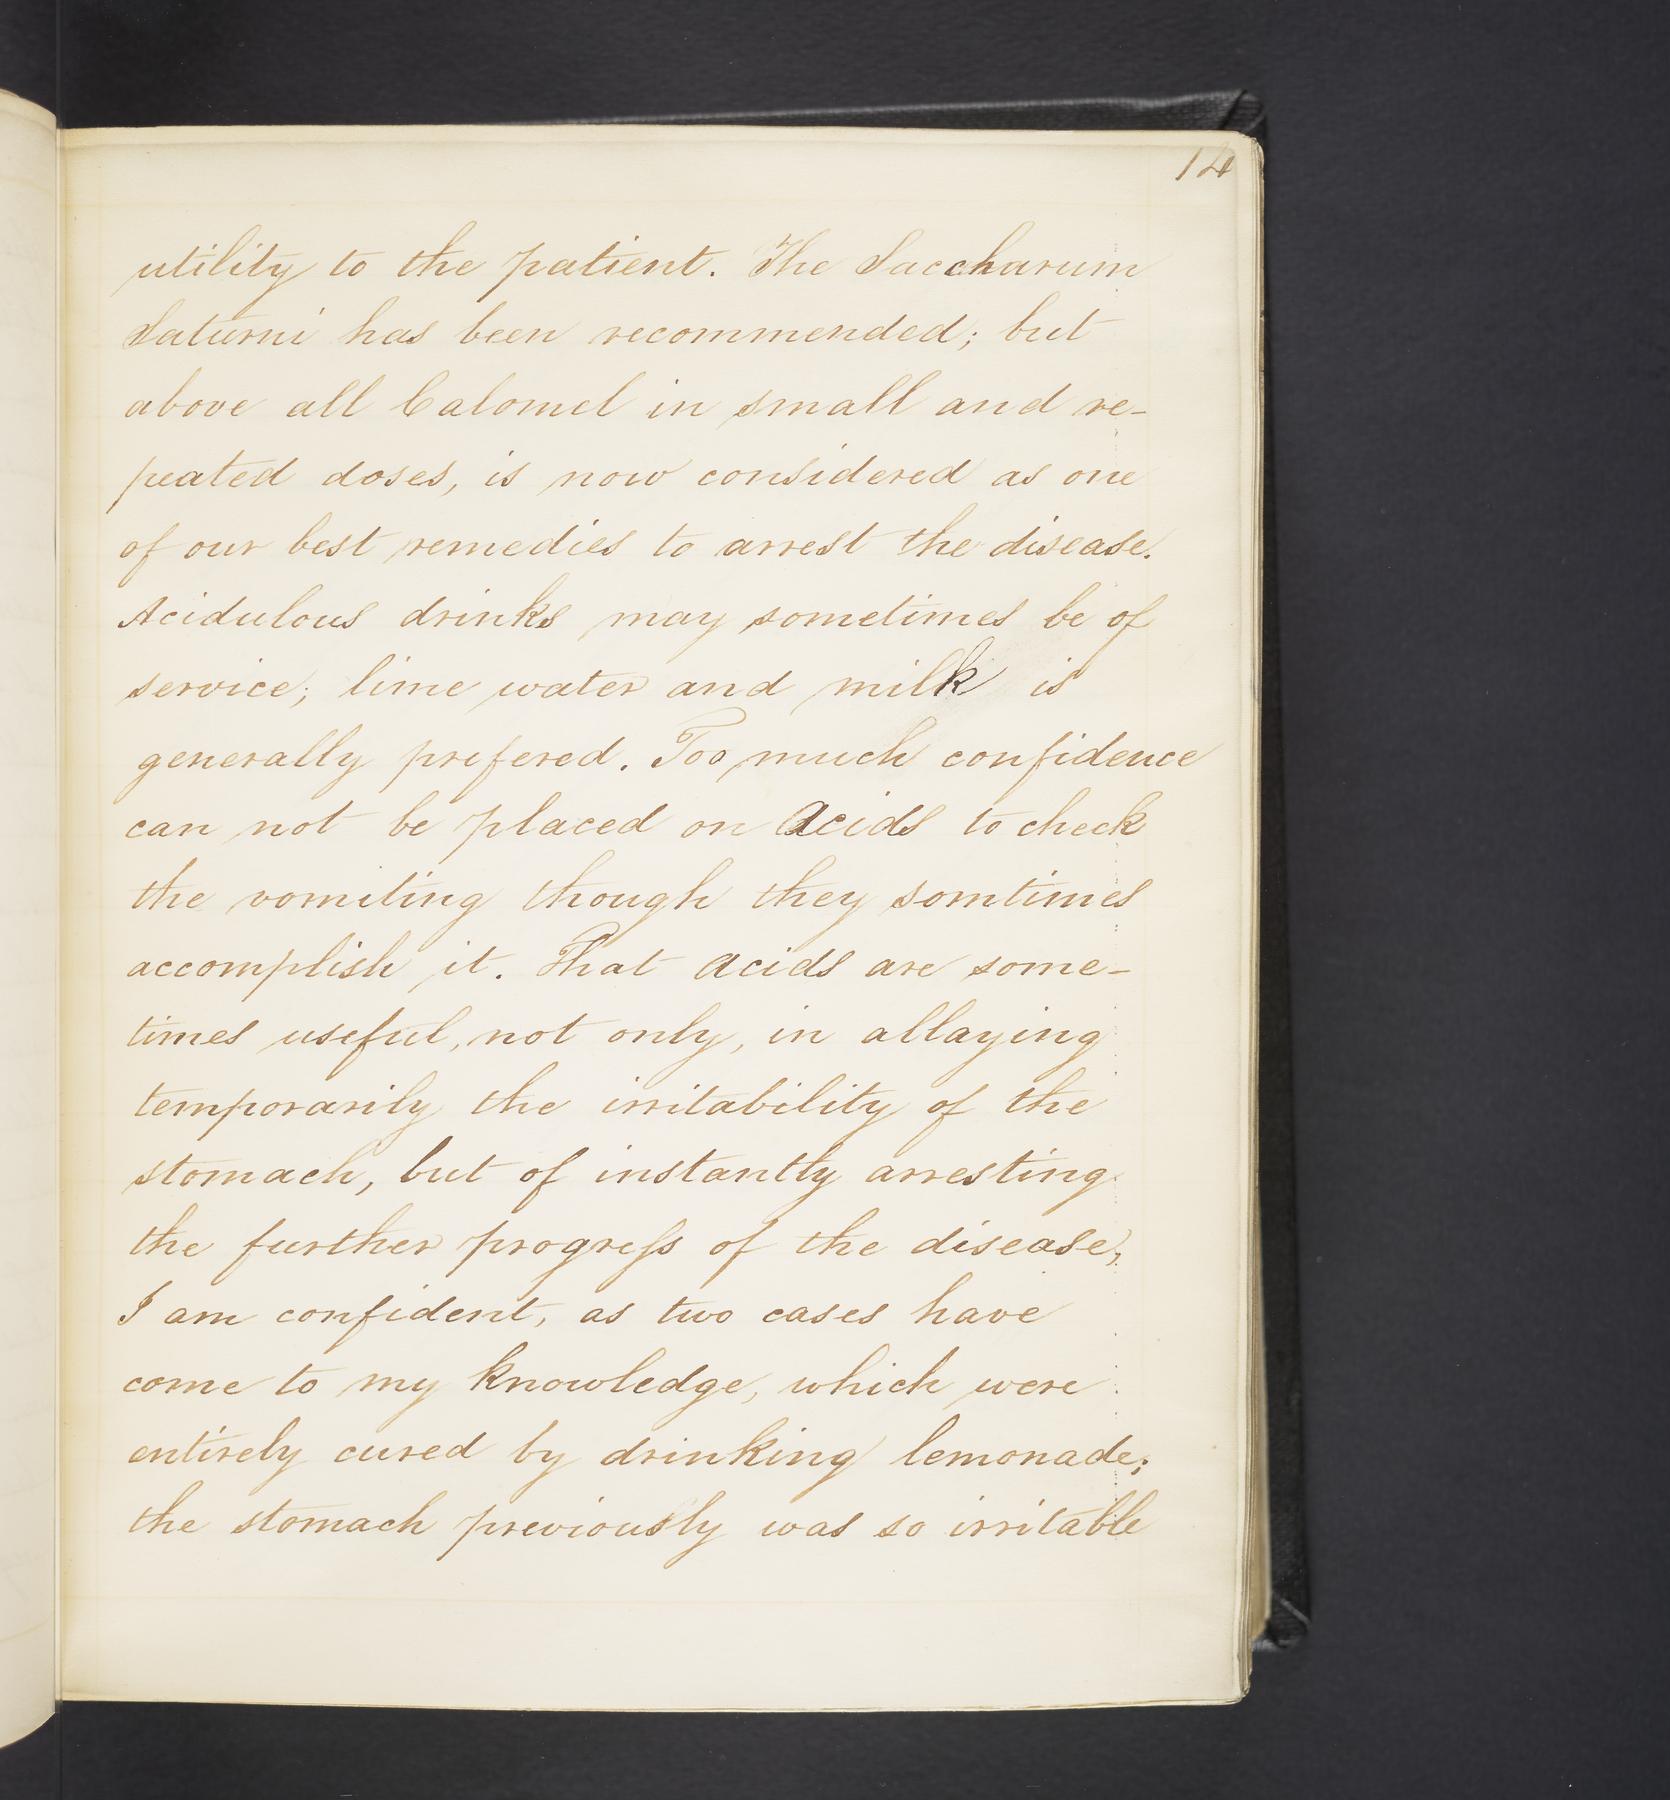 14
utility to the patient. The Saccharum
Saturni has been recommended; but
above all Calomel in small and re-
peated doses, is now considered as one
of our best remedies to arrest the disease.
Acidulous drinks may sometimes be of
service; lime water and milk is
generally prefered. Too much confidence
can not be placed on Acids to check
the vomiting though they somtimes
accomplish it. That acids are some-
times useful, not only, in allaying
temporarily the irritability of the
stomach, but of instantly arresting
the further progress of the disease,
I am confident, as two cases have
come to my knowledge, which were
entirely cured by drinking lemonade;
the stomach previously was so irritable